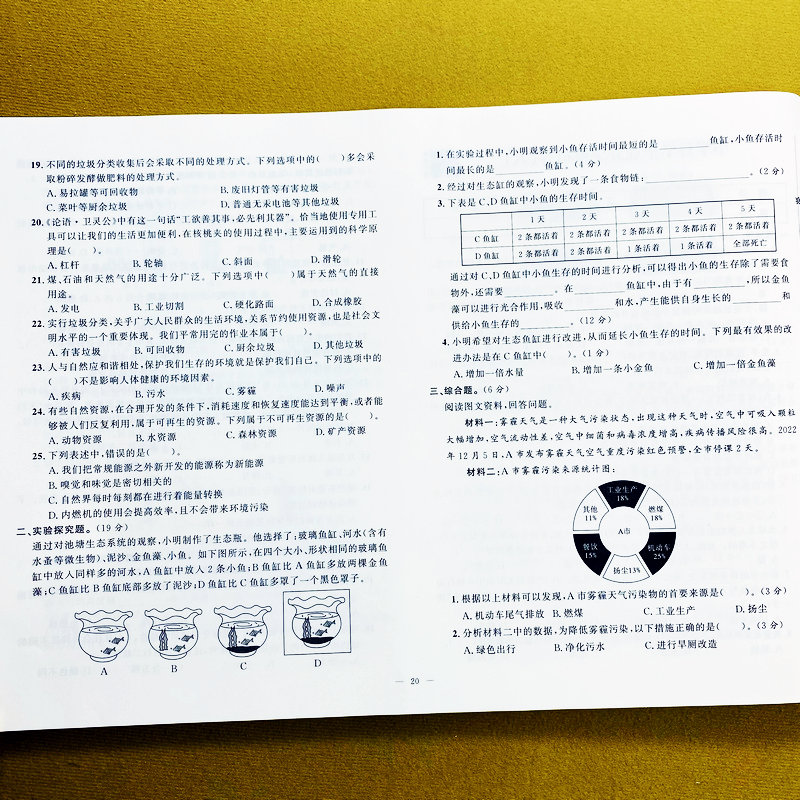 19. 不同的垃圾分类收集后会采取不同的处理方式。下列选项中的(　　)多会采
取粉碎发酵做肥料的处理方式。
A. 易拉罐等可回收物　B. 废旧灯管等有害垃圾
C. 菜叶等厨余垃圾　D. 普通无汞电池等其他垃圾
20.《论语·卫灵公》中有这一句话“工欲善其事,必先利其器”。恰当地使用专用工
具可以让我们的生活更加便利,在核桃夹的使用过程中,主要运用到的科学原
理是(　　)。
A. 杠杆　B. 轮轴　C. 斜面　D. 滑轮
21. 煤、石油和天然气的用途十分广泛。下列选项中(　　)属于天然气的直接
用途。
A. 发电　B. 工业切割　C. 硬化路面　D. 合成橡胶
22. 实行垃圾分类,关乎广大人民群众的生活环境,关系节约使用资源,也是社会文
明水平的一个重要体现。我们平常用完的作业本属于(　　)。
A. 有害垃圾　B. 可回收物　C. 厨余垃圾　D. 其他垃圾
23. 人与自然应和谐相处,保护我们生存的环境就是保护我们自己。下列选项中的
(　　)不是影响人体健康的环境因素。
A. 疾病　B. 污水　C. 雾霾　D. 噪声
24. 有些自然资源,在合理开发的条件下,消耗速度和恢复速度能达到平衡,或者能
够被人们反复利用,属于可再生的资源。下列属于不可再生资源的是(　　)。
A. 动物资源　B. 水资源　C. 森林资源　D. 矿产资源
25. 下列表述中,错误的是(　　)。
A. 我们把常规能源之外新开发的能源称为新能源
B. 嗅觉和味觉是密切相关的
C. 自然界每时每刻都在进行着能量转换
D. 内燃机的使用会提高效率,且不会带来环境污染
二、实验探究题。(19 分)
通过对池塘生态系统的观察,小明制作了生态瓶。他选择了:玻璃鱼缸、河水(含有
水蚤等微生物)、泥沙、金鱼藻、小鱼。如下图所示,在四个大小、形状相同的玻璃鱼
缸中放入同样多的河水,A 鱼缸中放入 2 条小鱼;B 鱼缸比 A 鱼缸多放两棵金鱼
藻;C 鱼缸比 B 鱼缸底部多放了泥沙;D 鱼缸比 C 鱼缸多罩了一个黑色罩子。
A　B　C　D
1. 在实验过程中,小明观察到小鱼存活时间最短的是________鱼缸,小鱼存活时
间最长的是________鱼缸。(4 分)
2. 经过对生态缸的观察,小明发现了一条食物链:________________。(2 分)
3. 下表是 C、D 鱼缸中小鱼的生存时间。
1 天　2 天　3 天　4 天　5 天
C 鱼缸　2 条都活着　2 条都活着　2 条都活着　2 条都活着　2 条都活着
D 鱼缸　2 条都活着　2 条都活着　1 条活着　1 条活着　全部死亡
通过对 C、D 鱼缸中小鱼生存的时间进行分析,可以得出小鱼的生存除了需要食
物外,还需要________。在________鱼缸中,由于有________,所以金鱼
藻可以进行光合作用,吸收________和水,产生能供自身生长的________和
供给小鱼生存的________。(12 分)
4. 小明希望对生态鱼缸进行改进,从而延长小鱼生存的时间。下列最有效果的改
进办法是在 C 鱼缸中(　　)。(1 分)
A. 增加一倍水量　B. 增加一条小金鱼　C. 增加一倍金鱼藻
三、综合题。(6 分)
阅读图文资料,回答问题。
材料一:雾霾天气是一种大气污染状态,出现这种天气时,空气中可吸入颗粒
大幅增加,空气流动性差,空气中细菌和病毒浓度增高,疾病传播风险很高。2022
年 12 月 5 日,A 市发布雾霾天气空气重度污染红色预警,全市停课 2 天。
材料二:A 市雾霾污染来源统计图:
工业生产
18%
其他
11%
燃煤
18%
A市
餐饮
15%
机动车
25%
扬尘13%
1. 根据以上材料可以发现,A 市雾霾天气污染物的首要来源是(　　)。(3 分)
A. 机动车尾气排放　B. 燃煤　C. 工业生产　D. 扬尘
2. 分析材料二中的数据,为降低雾霾污染,以下措施正确的是(　　)。(3 分)
A. 绿色出行　B. 净化污水　C. 进行旱厕改造
— 20 —